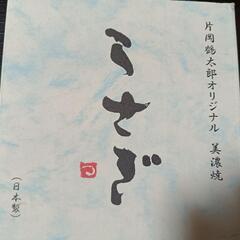 片岡鶴太郎オリジナル 美濃焼
うさぎ
(日本製)